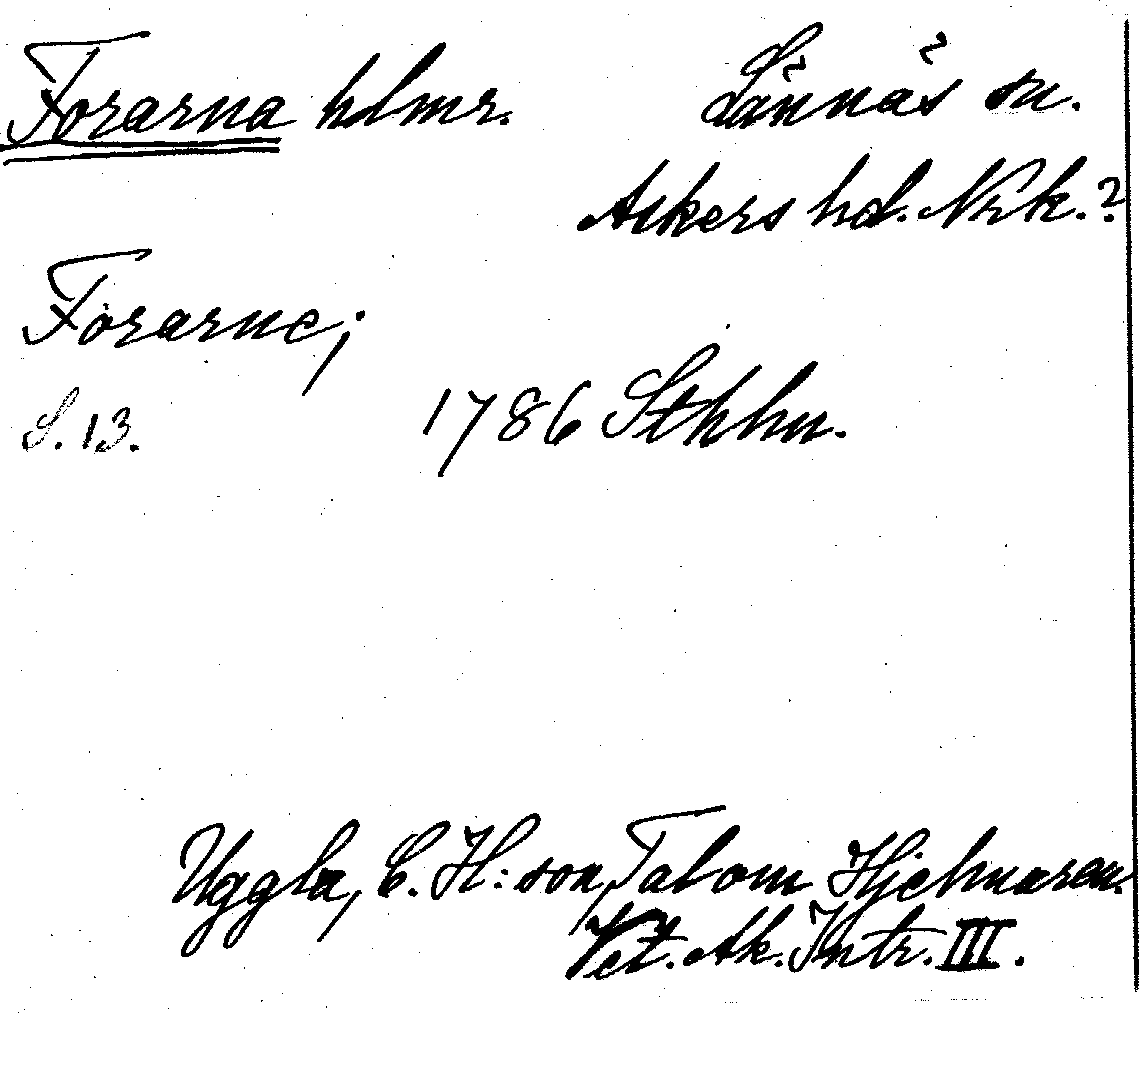 Forarna hlmr. Lännäs sn.
Askers hd. Nrk.?
Forarne;
S. 13. 1786 Sthhn.
Uggla, C. H:son, Tal om Hjelmaren.
Vet. Ak. Intr. III.